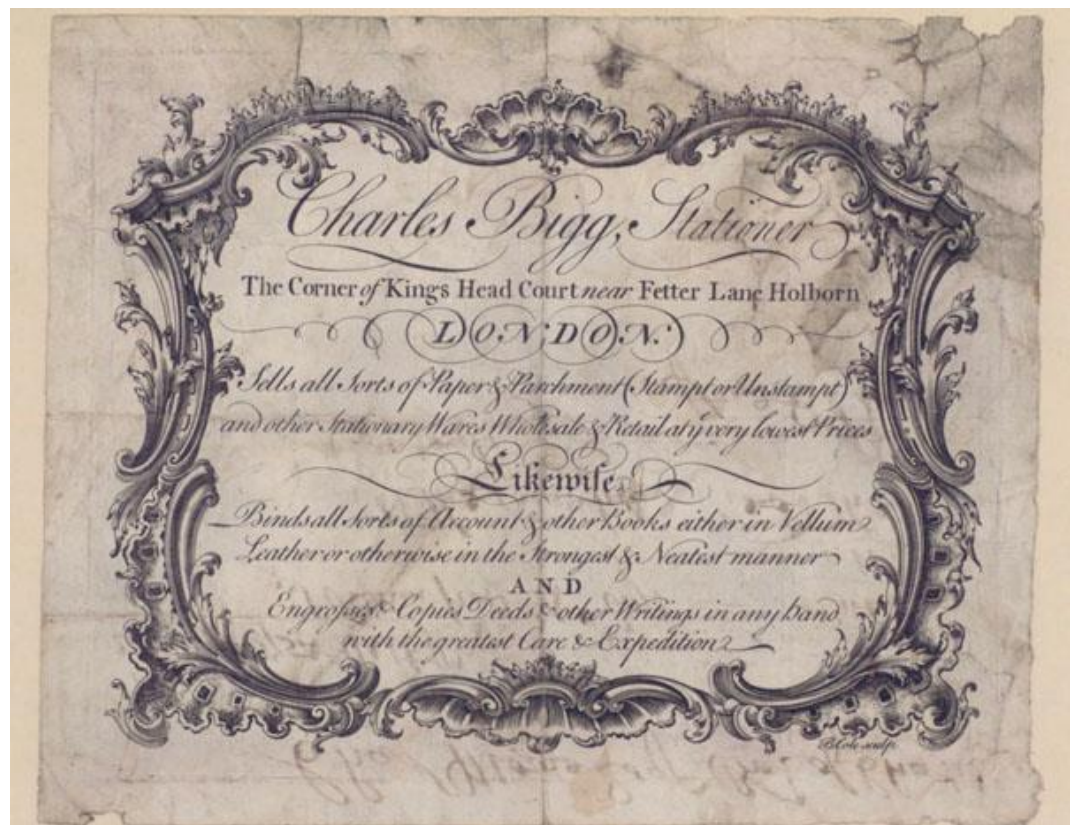 Charles Bigg, Stationer
The Corner of Kings Head Court near Fetter Lane Holborn
LONDON.
Sells all Sorts of Paper & Parchment (Stampt or Unstampt)
and other Stationary Wares Wholesale & Retail at ye very lowest Prices
Likewiſe
Binds all Sorts of Account & other Books either in Vellum
Leather or otherwise in the Strongest & Neatest manner
AND
Engroſses & Copies Deeds & other Writings in any hand
with the greatest Care & Expedition
B. Cole sculp.